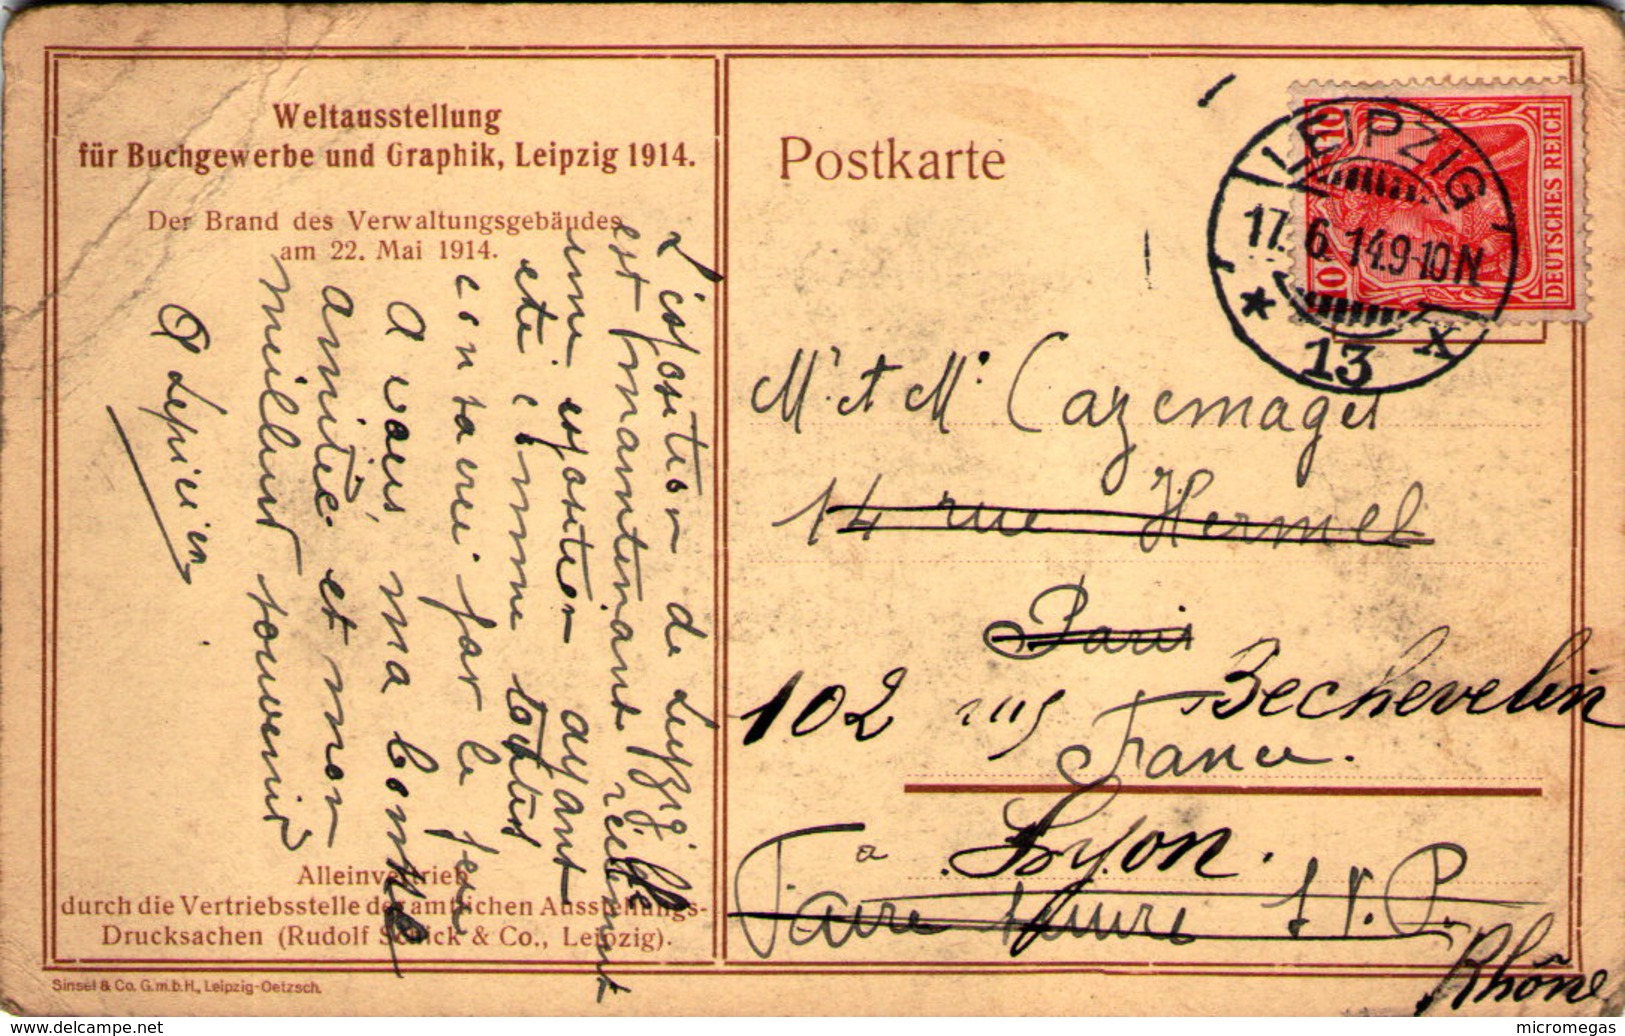 Weltausstellung
für Buchgewerbe und Graphik, Leipzig 1914.
Der Brand des Verwaltungsgebäudes
am 22. Mai 1914.
L'exposition de Leipzig
est maintenant réelement
une exposition ayant
été même
contaire par le feu
A vous, ma bonne
amitié et mon
meilleur souvenir
Lepicier
Alleinvertrieb
durch die Vertriebsstelle der amtlichen Ausstellungs-
Drucksachen (Rudolf Schick & Co., Leipzig).
Sinsel & Co. G.m.b.H., Leipzig-Oetzsch.
Postkarte
LEIPZIG
17. 6. 14. 9-10 N
* 13 X
10 10
DEUTSCHES REICH
Mr et Me Cazemages
14 rue Hermel
Paris
102 rue Bechevelin
France.
a Lyon.
Faire suivre S. V. P.
Rhône
micromegas